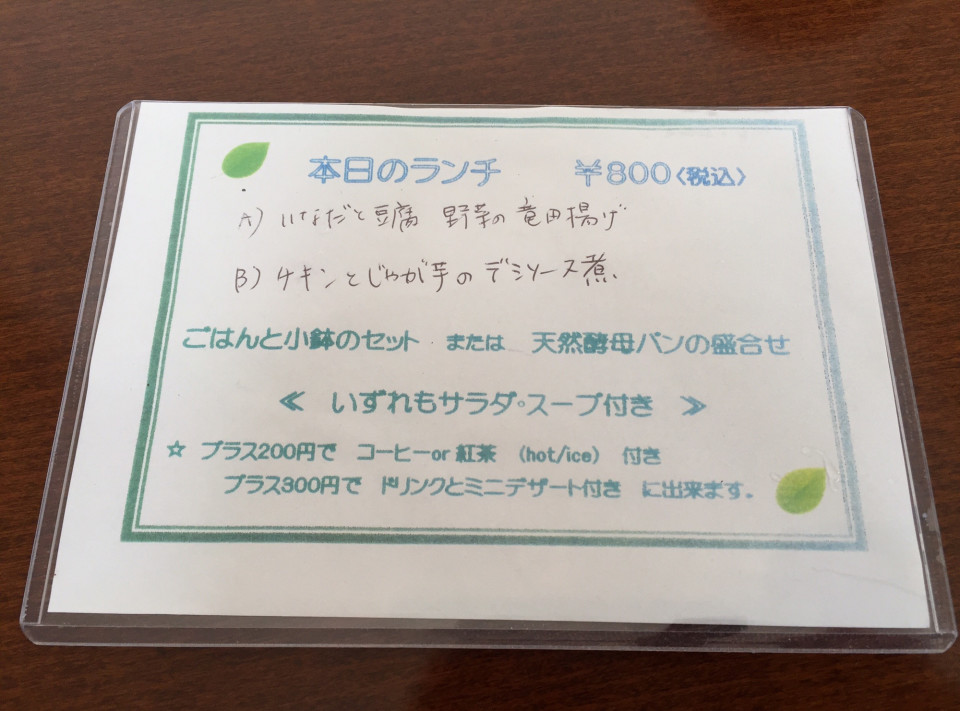 本日のランチ ¥800〈税込〉
A) いなだと豆腐 野菜の竜田揚げ
B) チキンとじゃが芋のデミソース煮
ごはんと小鉢のセット または 天然酵母パンの盛合せ
≪ いずれもサラダ・スープ付き ≫
☆ プラス200円で コーヒーor紅茶 (hot/ice) 付き
プラス300円で ドリンクとミニデザート付き に出来ます。